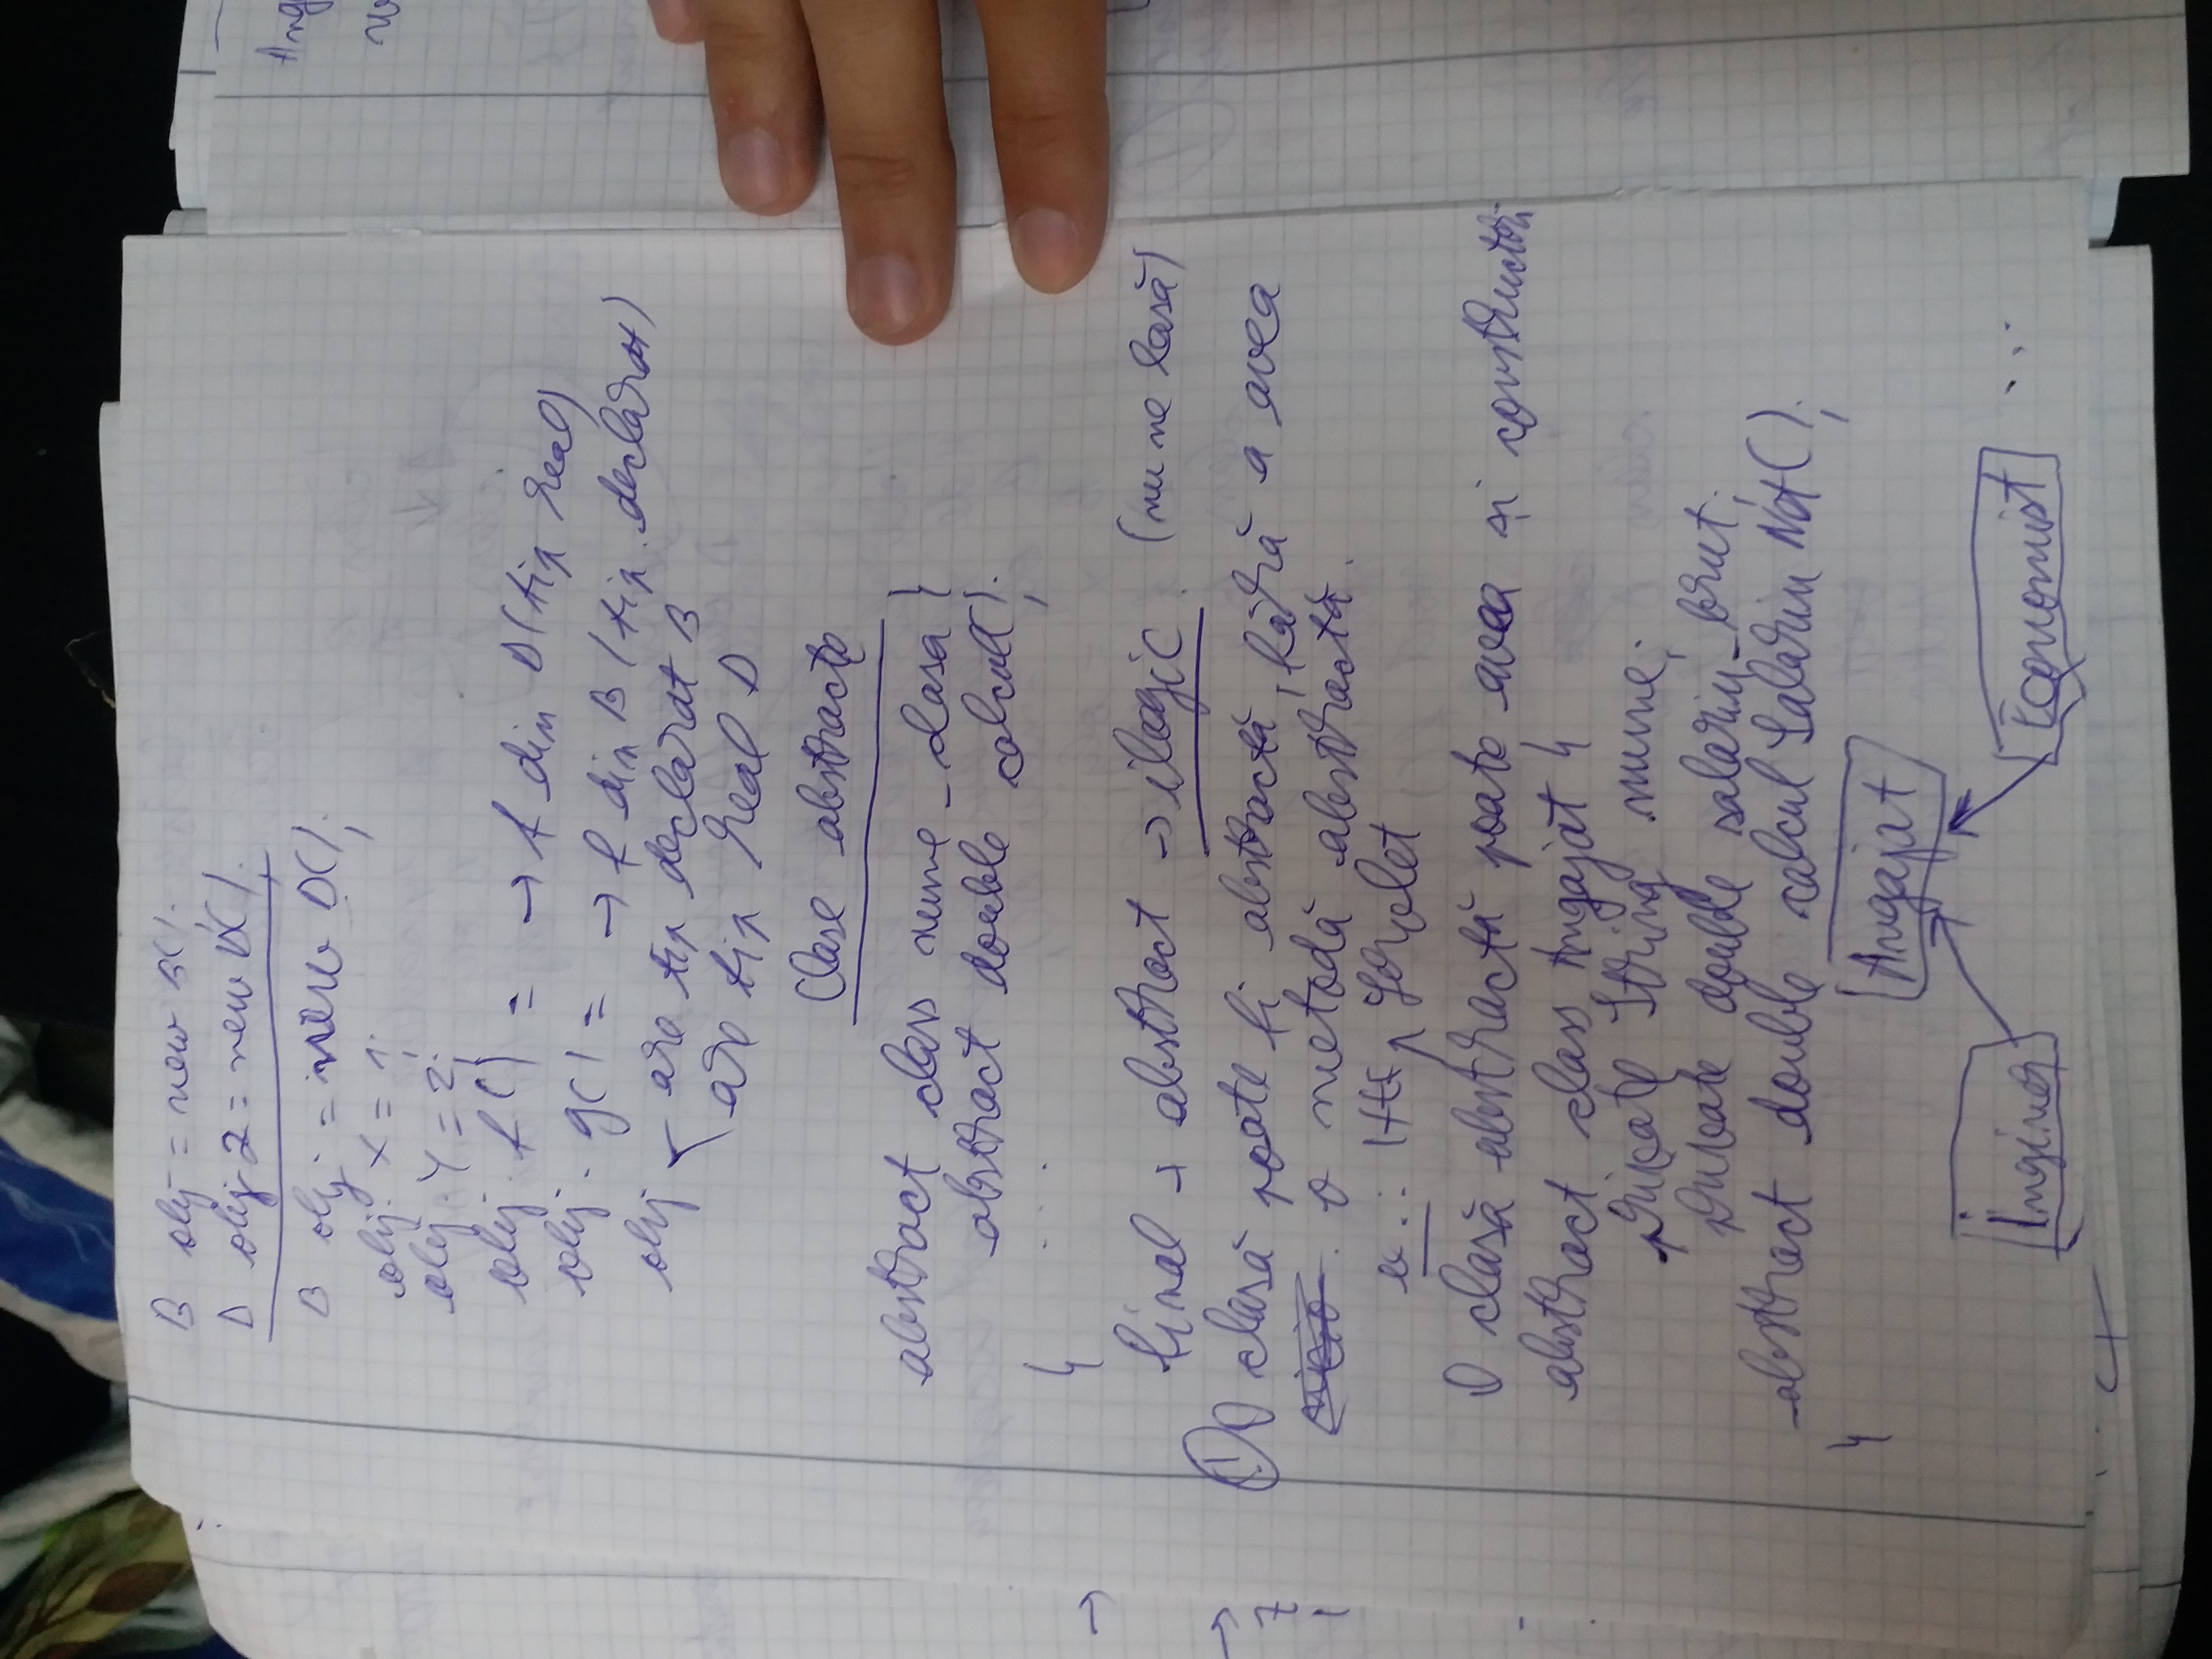 B obj = new B();
D obj2 = new D();
B obj = new D();
obj. x = 1;
obj. y = 2;
obj. f() = → f din D (tip real)
obj. g() = → f din B (tip declarat)
obj are tip declarat B
are tip real D
Clase abstracte
abstract class nume_clasa {
abstract double calcul();
....
}
final + abstract → ilogic. (nu ne lasă)
! O clasă poate fi abstractă, fără a avea
o metodă abstractă.
ex.: Http Servlet
O clasă abstractă poate avea și constructori
abstract class Angajat {
private String nume;
private double salariu_brut;
abstract double calcul Salariu Net();
}
Angajat
Inginer Economist ...
Ang